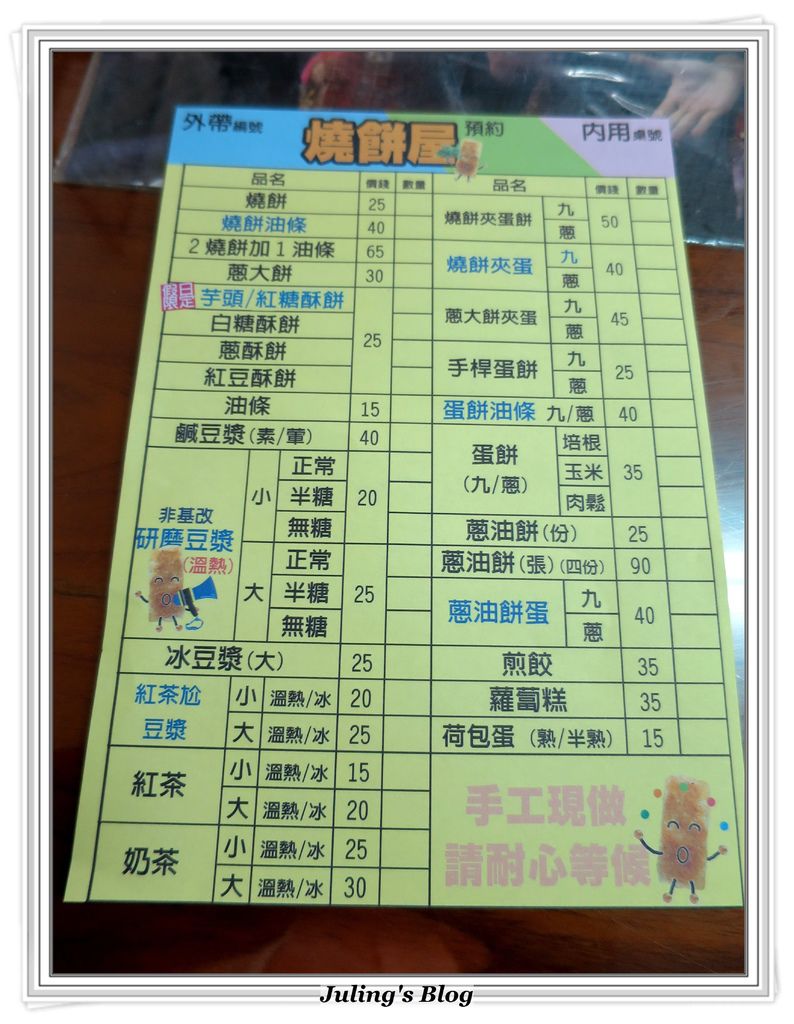 外帶編號
燒餅屋
預約
內用桌號
品名 價錢 數量
燒餅 25
燒餅油條 40
2燒餅加1油條 65
蔥大餅 30
假日限定 芋頭/紅糖酥餅
白糖酥餅
蔥酥餅
紅豆酥餅
25
油條 15
鹹豆漿(素/葷) 40
非基改
研磨豆漿
(溫熱)
小 正常
半糖
無糖
20
大 正常
半糖
無糖
25
冰豆漿(大) 25
紅茶尬
豆漿
小 溫熱/冰 20
大 溫熱/冰 25
紅茶
小 溫熱/冰 15
大 溫熱/冰 20
奶茶
小 溫熱/冰 25
大 溫熱/冰 30
品名 價錢 數量
燒餅夾蛋餅 九 蔥 50
燒餅夾蛋 九 蔥 40
蔥大餅夾蛋 九 蔥 45
手桿蛋餅 九 蔥 25
蛋餅油條 九/蔥 40
蛋餅
(九/蔥)
培根
玉米
肉鬆
35
蔥油餅(份) 25
蔥油餅(張)(四份) 90
蔥油餅蛋 九 蔥 40
煎餃 35
蘿蔔糕 35
荷包蛋 (熟/半熟) 15
手工現做
請耐心等候
Juling's Blog